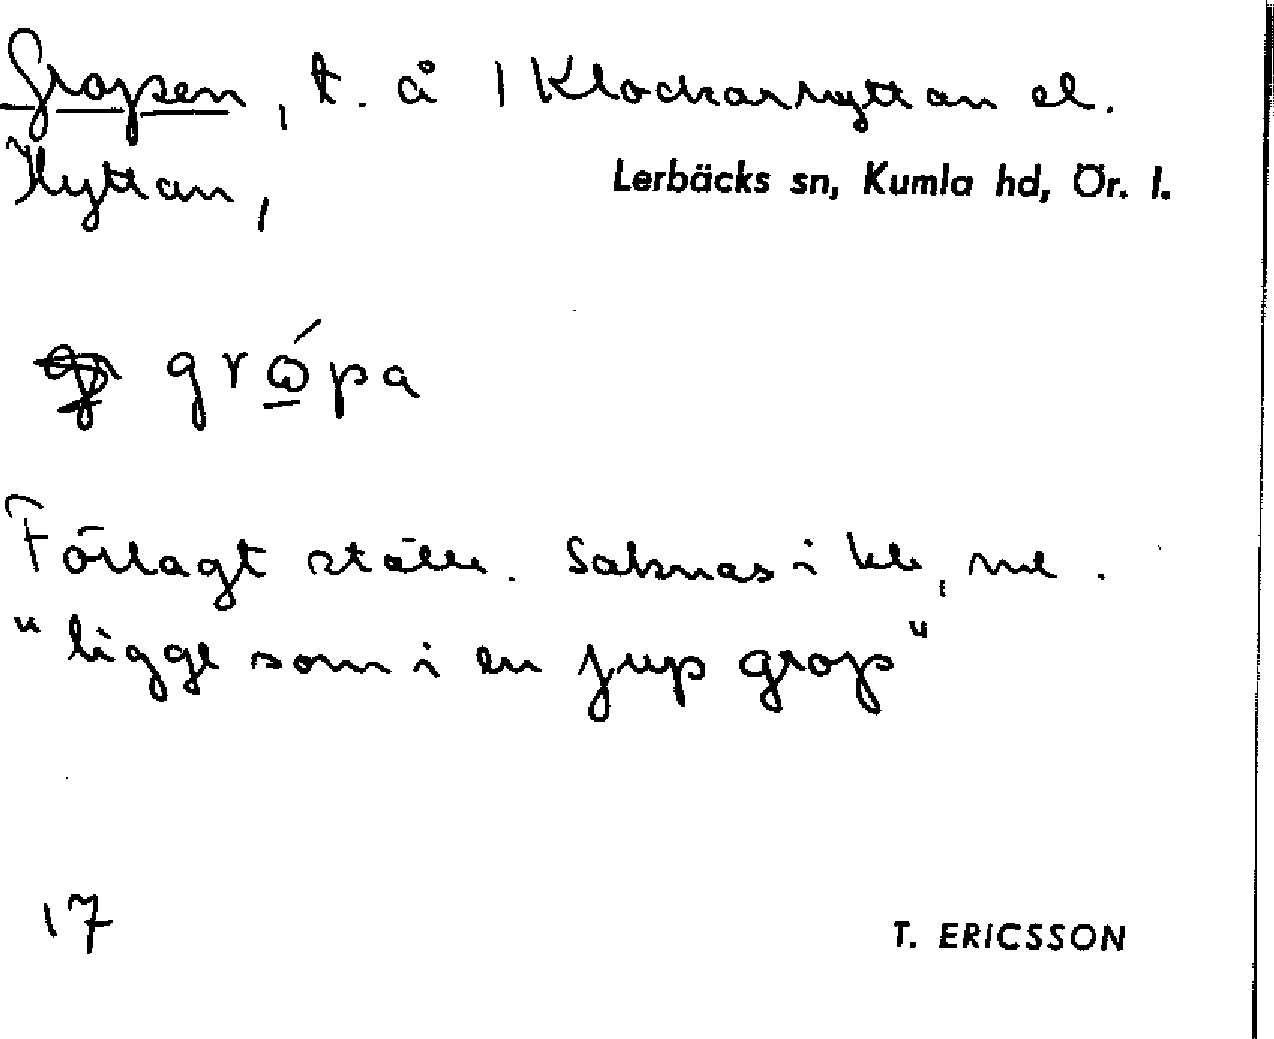 Gropen, t. å 1 Klockarhyttan el.
Hyttan,
Lerbäcks sn, Kumla hd, Ör. l.
grópa
Förlagt ställe. Saknas i
"ligge som i en jup grop"
17
T. ERICSSON